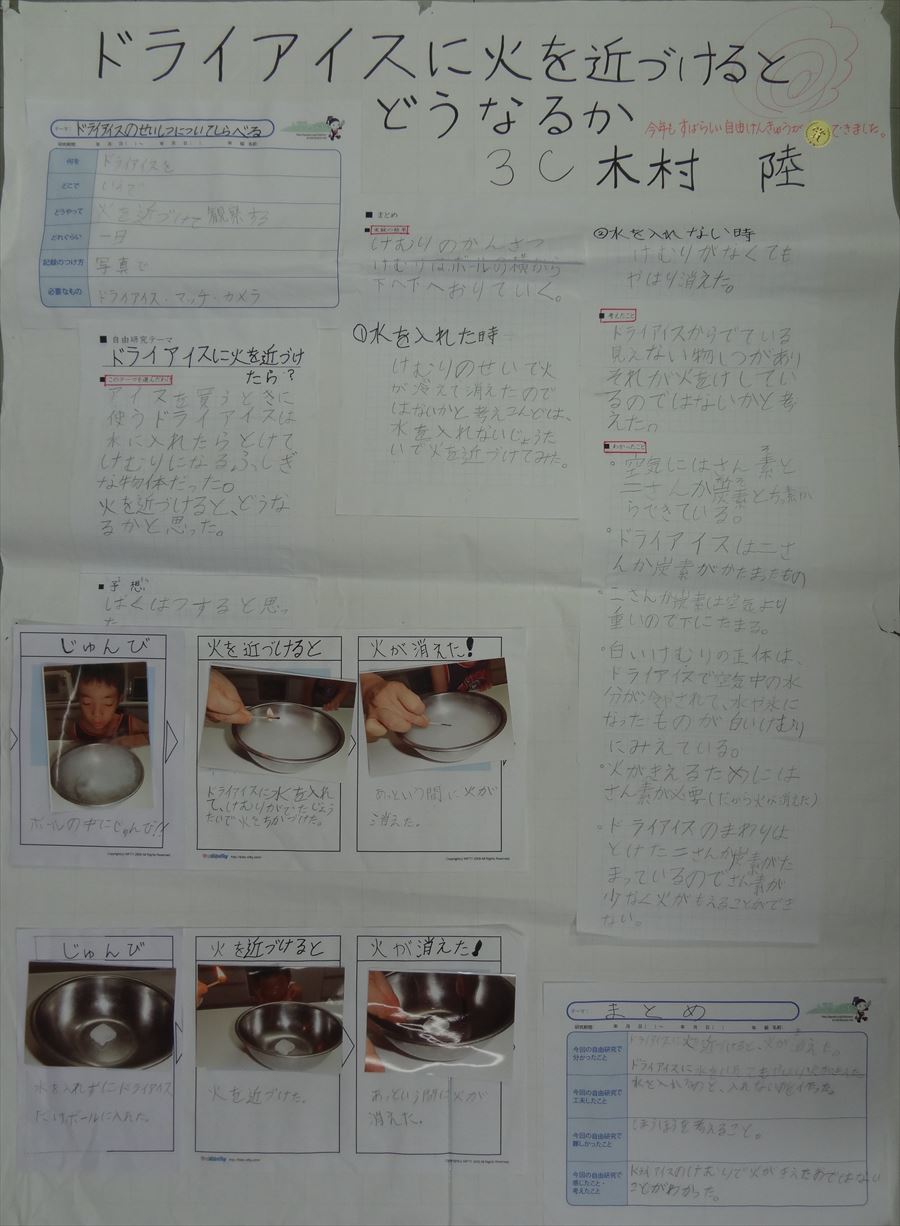 ドライアイスに火を近づけると
どうなるか
今年もすばらしい自由けんきゅうができました。
3C 木村 陸
テーマ: ドライアイスのせいしつについてしらべる
研究期間 年 月 日( )～ 年 月 日( ) 年 組 名前
何を ドライアイスを
どこで いえで
どうやって 火を近づけて観察する
どれぐらい 一日
記録のつけ方 写真で
必要なもの ドライアイス・マッチ・カメラ
■ 自由研究テーマ
ドライアイスに火を近づけ
たら?
■ このテーマを選んだわけ
アイスを買うときに
使うドライアイスは
水に入れたらとけて
けむりになる、ふしぎ
な物体だった。
火を近づけると、どうな
るかと思った。
■ 予想
ばくはつすると思っ
た
■ まとめ
■ 実験の結果
けむりのかんさつ
けむりはボールの横から
下へ下へおりていく。
①水を入れた時
けむりのせいで火
が冷えて消えたので
はないかと考えこんどは、
水を入れないじょうた
いで火を近づけてみた。
②水を入れない時
けむりがなくても
やはり消えた。
■ 考えたこと
ドライアイスからでている
見えない物しつがあり
それが火をけしてい
るのではないかと考
えた。
■ わかったこと
・空気にはさん素と
二さんか炭素とちっ素か
らできている。
・ドライアイスは二さ
んか炭素がかたまったもの
・二さんか炭素は空気より
重いので下にたまる。
・白いけむりの正体は、
ドライアイスで空気中の水
分が冷やされて、水や氷に
なったものが白いけむり
にみえている。
・火がきえるためには
さん素が必要(だから火が消えた)
・ドライアイスのまわりは
とけた二さんか炭素がた
まっているのでさん素が
少なく火がもえることができ
ない。
じゅんび
ボールの中にじゅんび!!
火を近づけると
ドライアイスに水を入れ
て、けむりがでたじょう
たいで火をちかづけた。
火が消えた!
あっという間に火が
消えた。
じゅんび
水を入れずにドライアイス
だけボールに入れた。
火を近づけると
火を近づけた。
火が消えた!
あっという間に火が
消えた。
テーマ: まとめ
研究期間 年 月 日( )～ 年 月 日( ) 年 組 名前
今回の自由研究で
分かったこと
ドライアイスに火を近づけると、火が消えた。
今回の自由研究で
工夫したこと
水を入れるのと、入れない
今回の自由研究で
難しかったこと
ほうほうを考えること。
今回の自由研究で
感じたこと・
考えたこと
ドライアイスのけむりで火がきえたわけではない
ことがわかった。